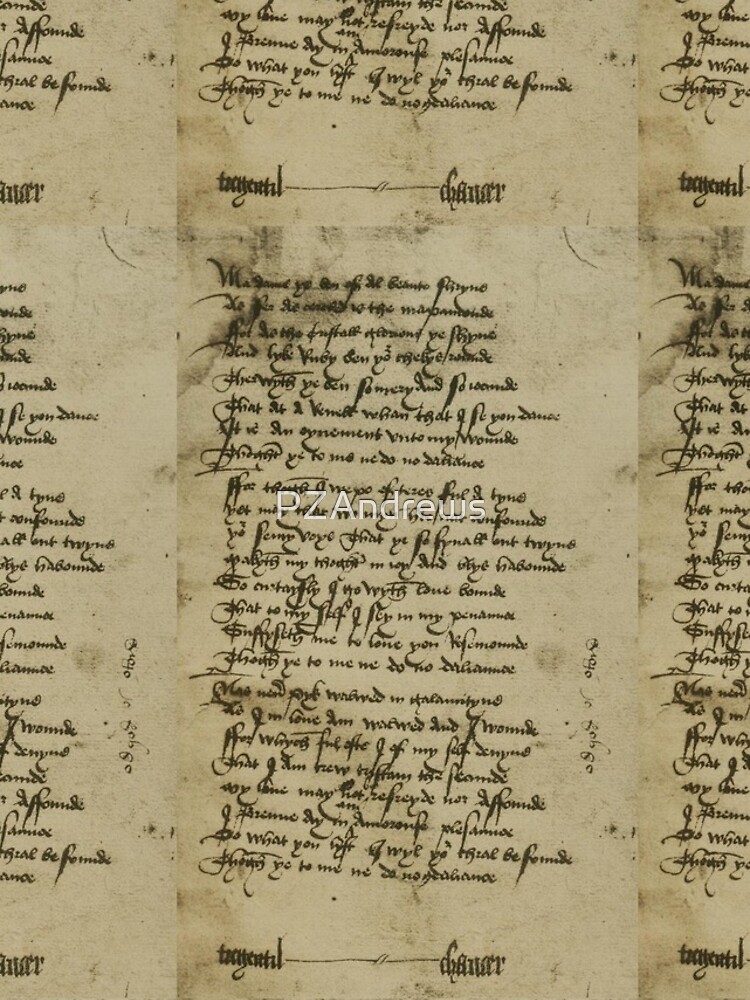 my loue may not refreyde nor affounde
I brenne ay in Amorouse plesance
Do what you lyst I wyl yor thral be founde
Thogh ye to me ne do no daliance
tregentil chaucer
Madame ye ben of al beaute shryne
As fer as cercled is the mapamonde
ffor as the Cristall glorious ye shyne
And lyke Ruby ben yor chekys rounde
Therwyth ye ben so mery and so iocunde
That at a Reuell whan that I se you dance
It is an oynement vnto my wounde
Thoght ye to me ne do no daliance
ffor thogh I wepe of teres ful a tyne
yet may that wo myn herte nat confounde
yor semy voys That ye so small out twyne
Makyth my thoght in ioy and blys habounde
So curtaysly I go wyth loue bounde
That to my self I sey in my penance
Suffyseth me to loue you Rosemounde
Thogh ye to me ne do no daliance
Nas neuer Pyk walwed in galauntyne
As I in loue Am walwed and I wounde
ffor whych ful ofte I of my self deuyne
That I Am trew tristam the secunde
my loue may not refreyde nor Affounde
I brenne ay in Amorouse plesance
Do what you lyst I wyl yor thral be founde
Thogh ye to me ne do no daliance
tregentil chaucer
PZAndrews